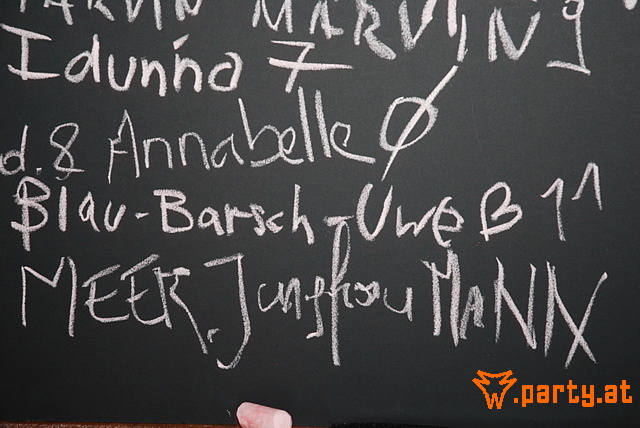 MARVIN
Idunna 7
d.8 Annabelle Ø
Blau-Barsch-Uwe B 11
MEER.Jungfrau MANN
W.party.at